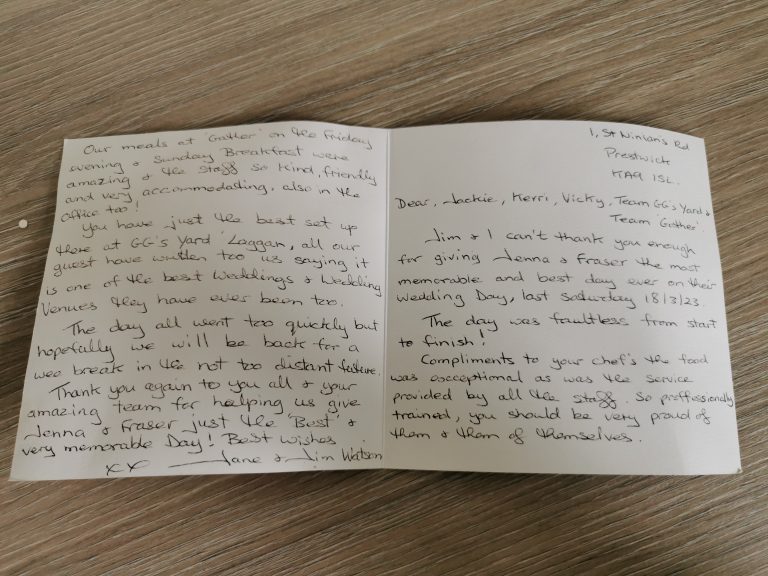 1, St Ninians Rd
Prestwick
KA9 1SL.
Dear, Jackie, Kerri, Vicky, Team GG's Yard &
Team 'Gather'.
Jim & I can't thank you enough
for giving Jenna & Fraser the most
memorable and best day ever on their
Wedding Day, last Saturday 18/3/23
The day was faultless from start
to finish!
Compliments to your chef's the food
was exceptional as was the service
provided by all the staff. So proffessionally
trained, you should be very proud of
them & them of themselves.
Our meals at 'Gather' on the Friday
evening & Sunday Breakfast were
amazing & the staff so kind, friendly
and very, accommodating, also in the
office too!
You have just the best set up
there at GG's Yard 'Laggan, all our
guest have written too us saying it
is one of the best Weddings & Wedding
Venues they have ever been too.
The day all went too quickly but
hopefully we will be back for a
wee break in the not too distant future.
Thank you again to you all & your
amazing team for helping us give
Jenna & Fraser just the 'Best' &
very memorable Day! Best wishes
xx Jane & Jim Watson